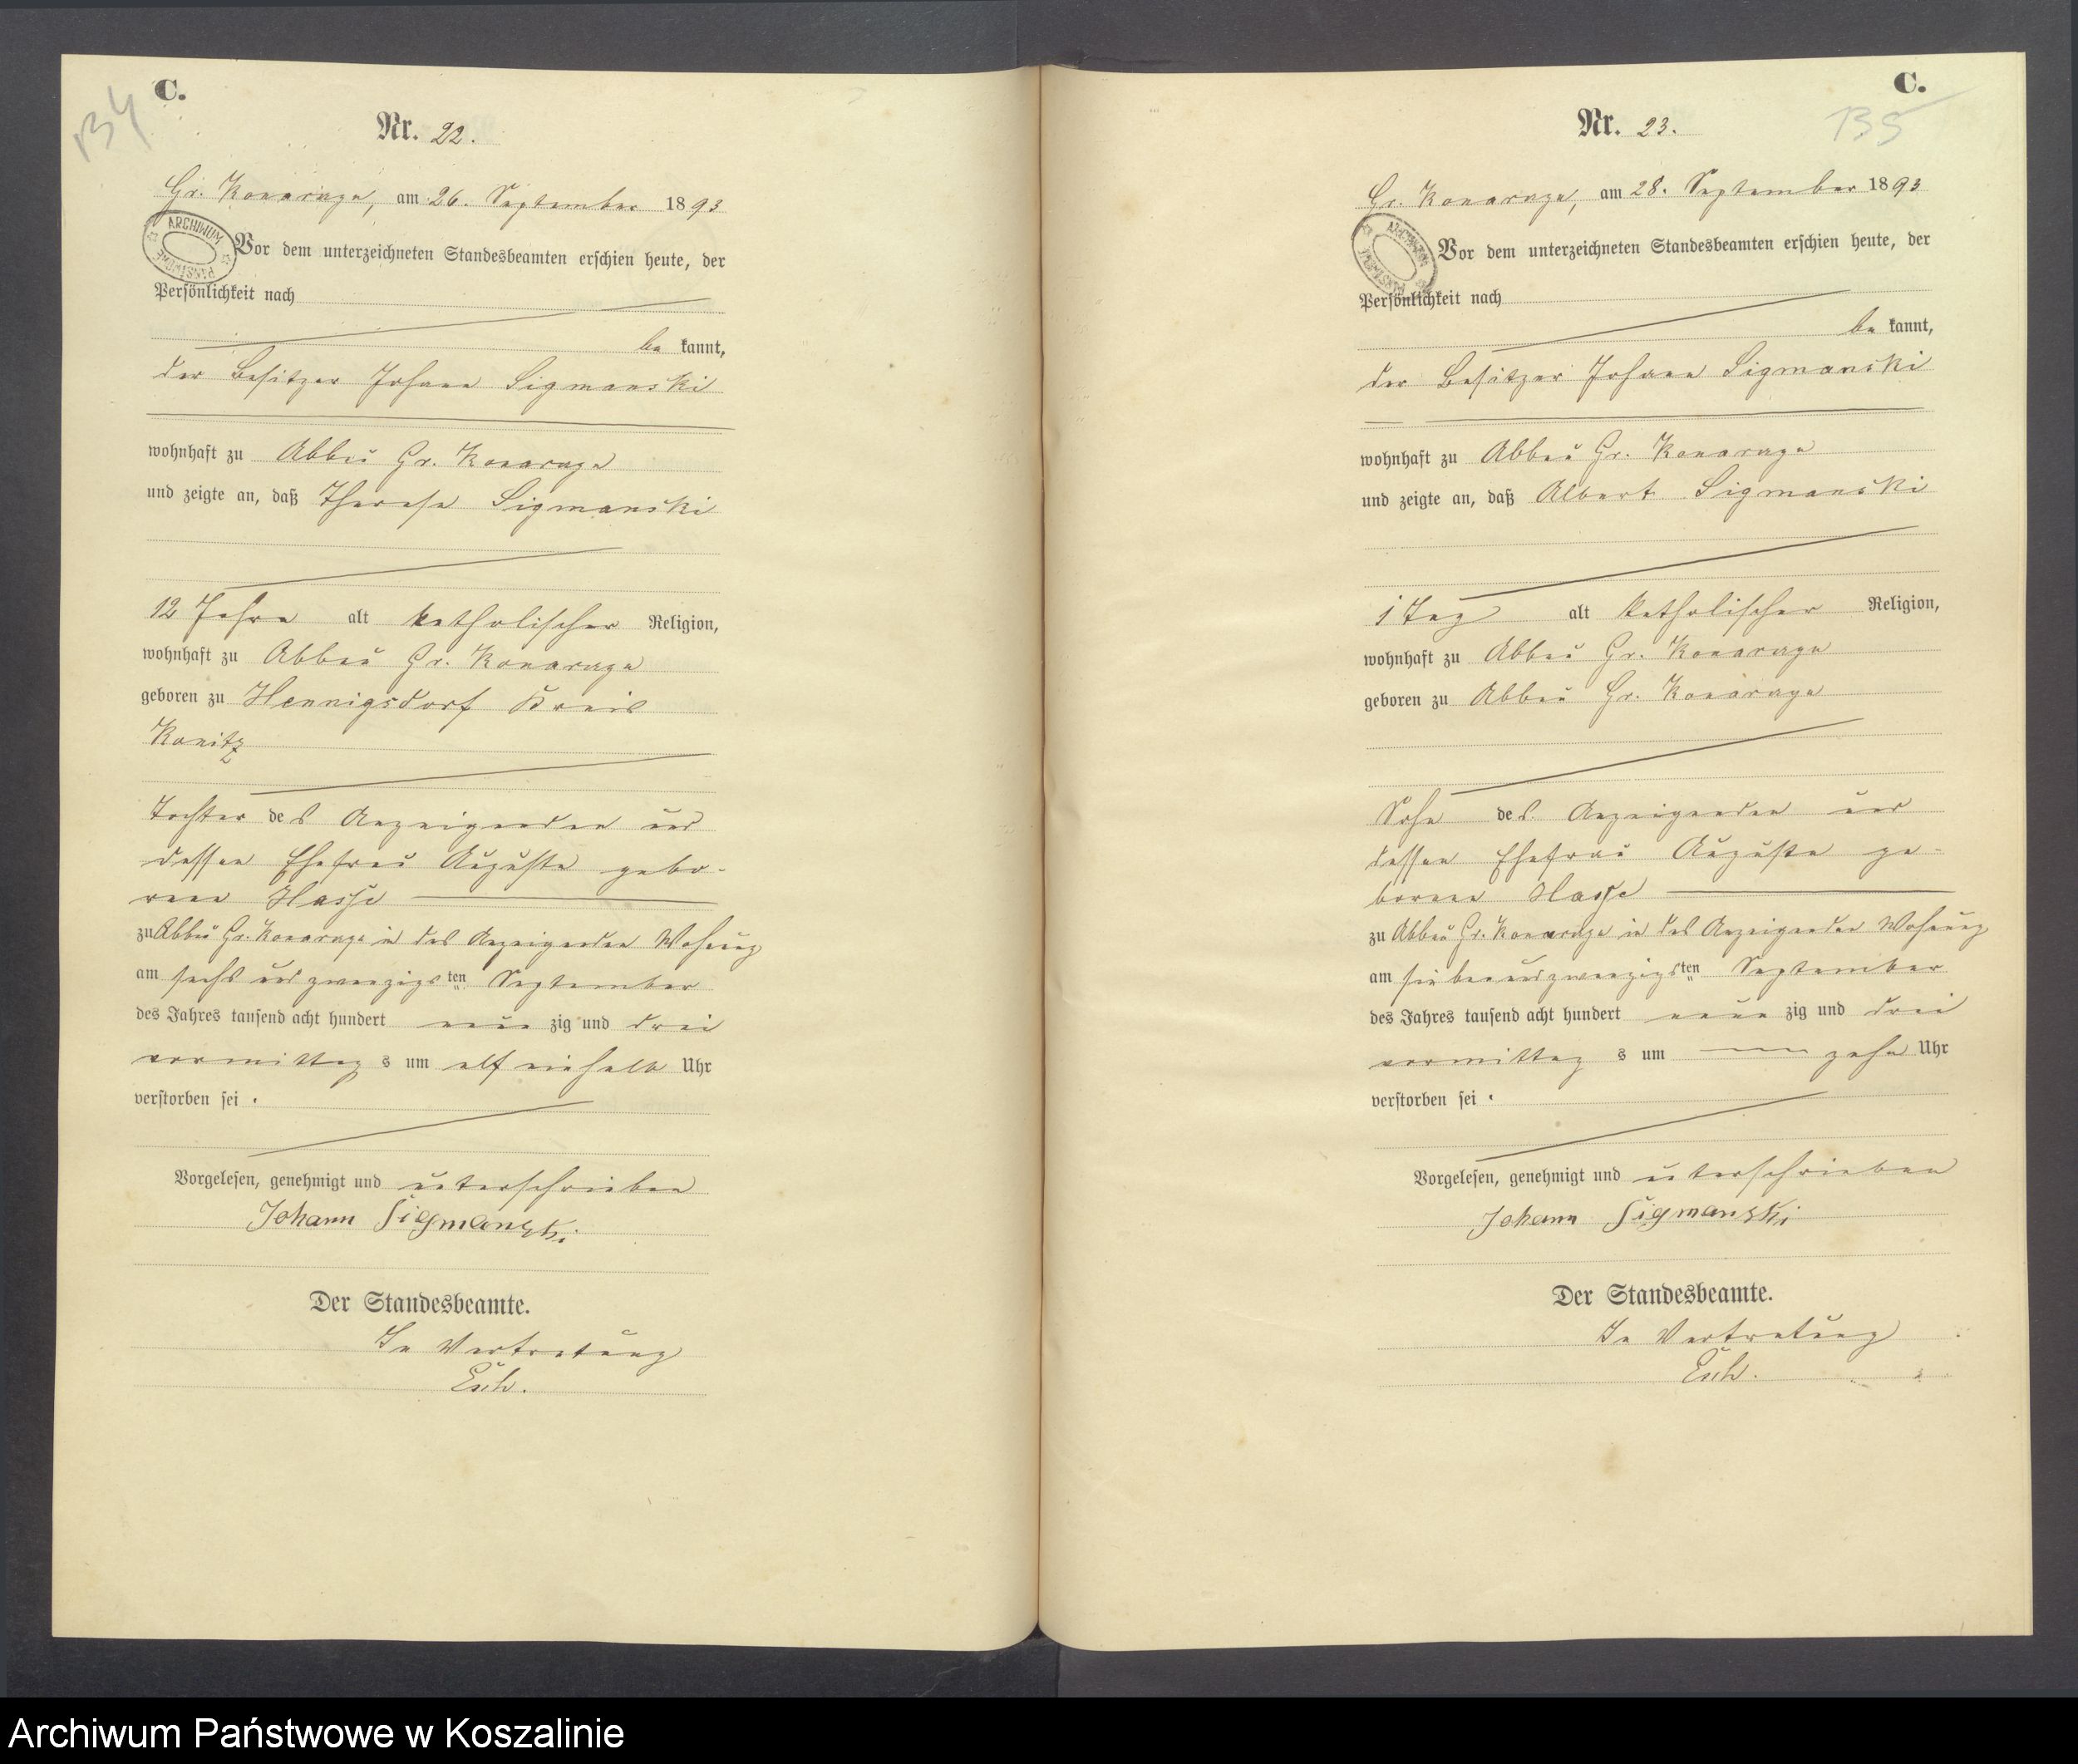 134
C.
Nr. 22.
Gr. Konarczyn, am 26. September 1893
ARCHIWUM PAŃSTWOWE
Vor dem unterzeichneten Standesbeamten erschien heute, der
Persönlichkeit nach
be kannt,
der Besitzer Johann Sigmanski
wohnhaft zu Abbau Gr. Konarczyn
und zeigte an, daß Therese Sigmanski
12 Jahre alt katholischer Religion,
wohnhaft zu Abbau Gr. Konarczyn
geboren zu Hennigsdorf Kreis
Konitz
Tochter des Anzeigenden und
dessen Ehefrau Auguste gebo-
rene Hasse
zu Abbau Gr. Konarczyn in des Anzeigenden Wohnung
am sechs und zwanzigsten September
des Jahres tausend acht hundert neun zig und drei
vormittag s um elf einhalb Uhr
verstorben sei .
Vorgelesen, genehmigt und unterschrieben
Johann Sigmanski
Der Standesbeamte.
In Vertretung
C.
135
Nr. 23.
Gr. Konarczyn, am 28. September 1893
ARCHIWUM PAŃSTWOWE
Vor dem unterzeichneten Standesbeamten erschien heute, der
Persönlichkeit nach
be kannt,
der Besitzer Johann Sigmanski
wohnhaft zu Abbau Gr. Konarczyn
und zeigte an, daß Albert Sigmanski
1 Tag alt katholischer Religion,
wohnhaft zu Abbau Gr. Konarczyn
geboren zu Abbau Gr. Konarczyn
Sohn des Anzeigenden und
dessen Ehefrau Auguste ge-
borene Hasse
zu Abbau Gr. Konarczyn in des Anzeigenden Wohnung
am sieben und zwanzigsten September
des Jahres tausend acht hundert neun zig und drei
vormittag s um zehn Uhr
verstorben sei .
Vorgelesen, genehmigt und unterschrieben
Johann Sigmanski
Der Standesbeamte.
In Vertretung
Archiwum Państwowe w Koszalinie